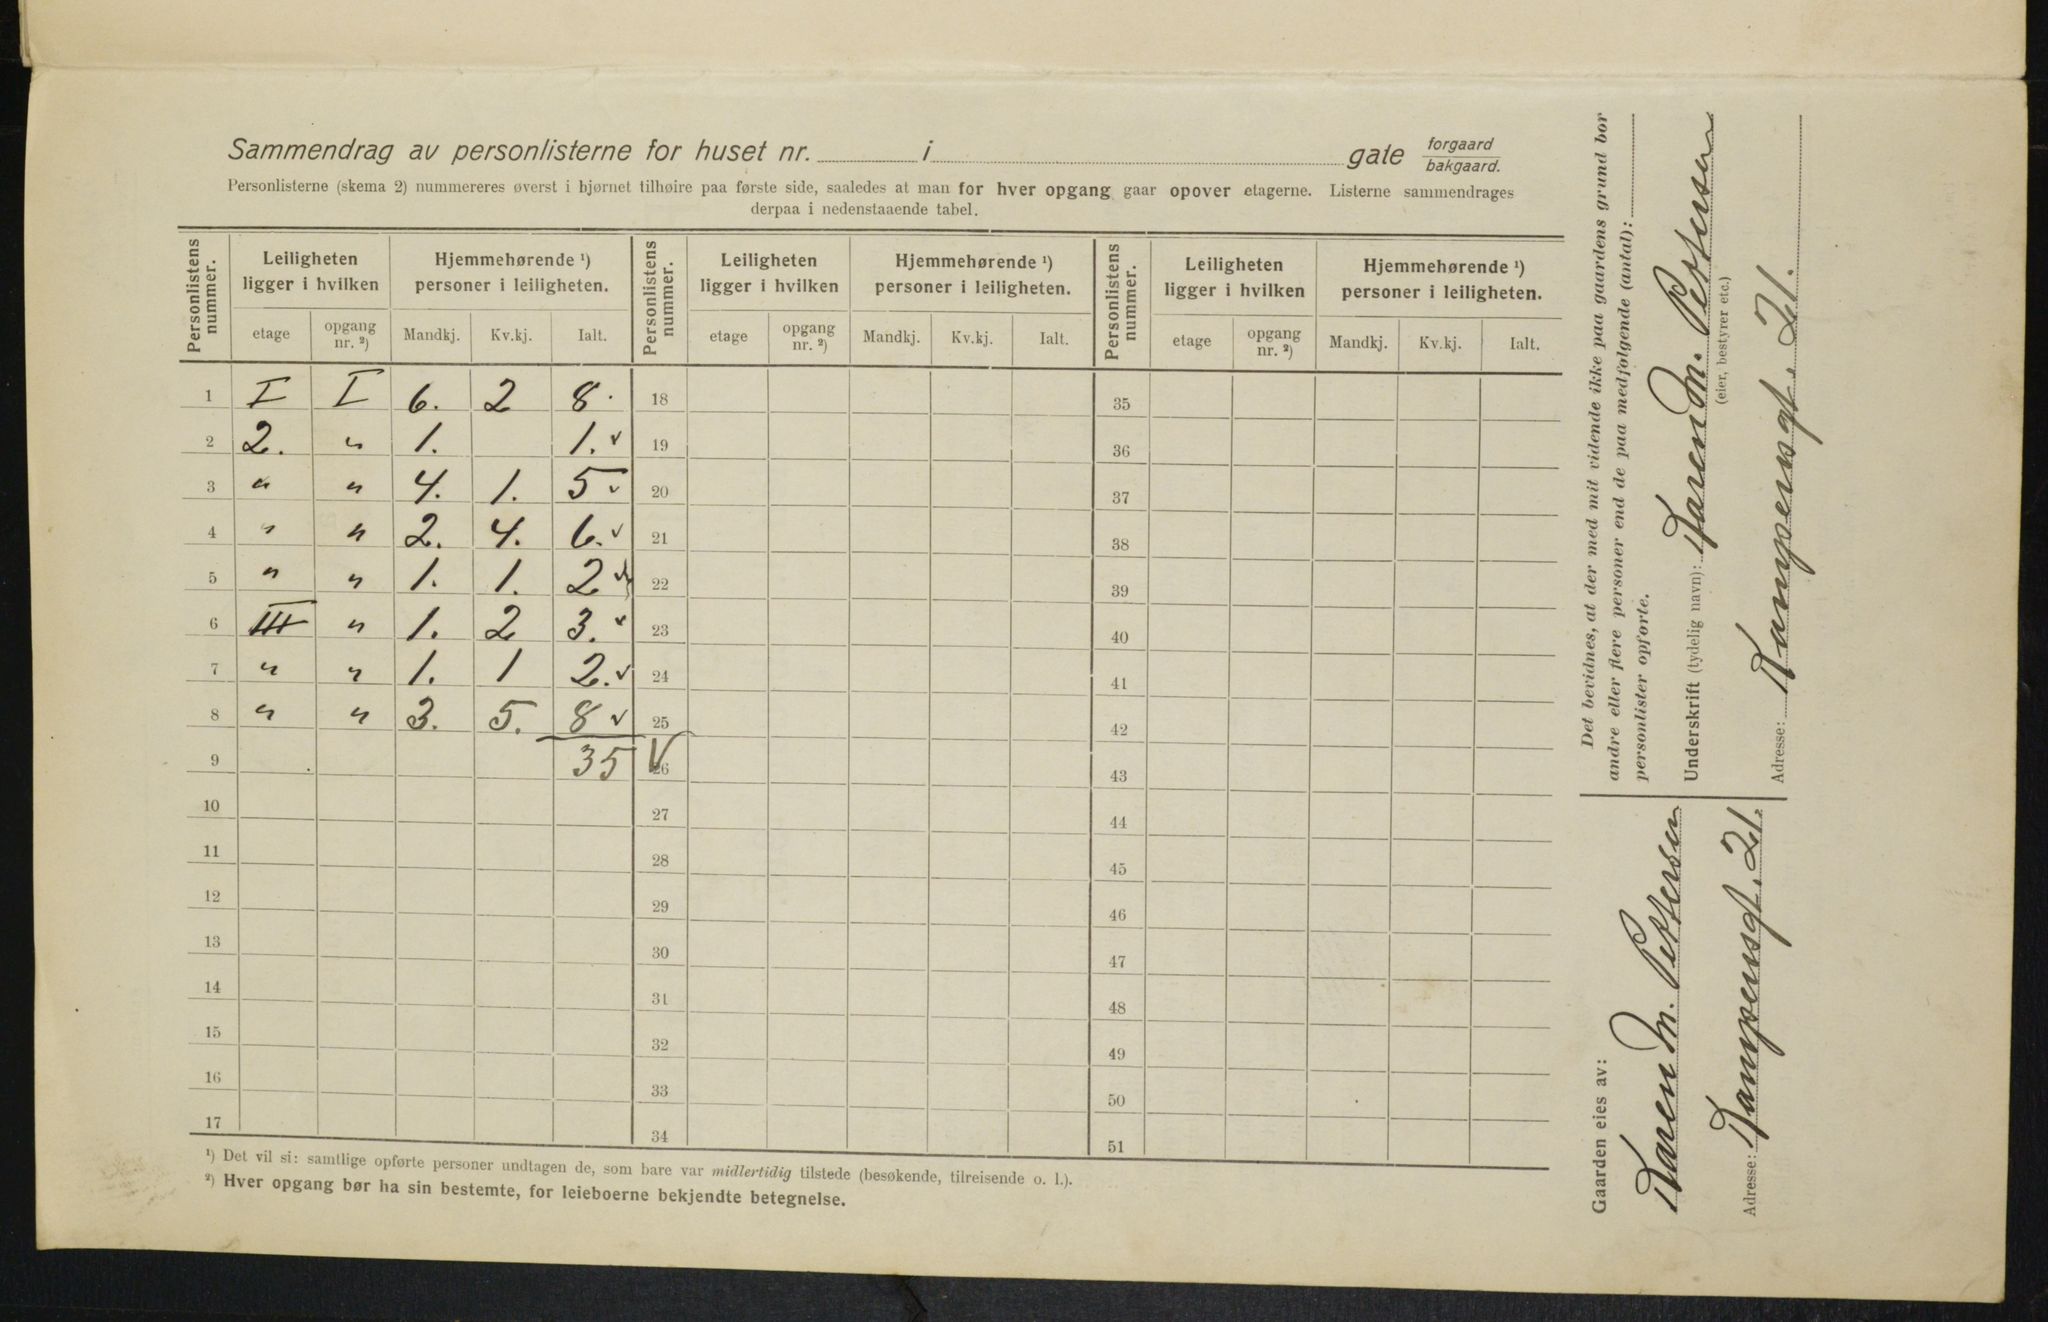 Sammendrag av personlisterne for huset nr. i gate forgaard
bakgaard.
Personlisterne (skema 2) nummereres øverst i hjørnet tilhøire paa første side, saaledes at man for hver opgang gaar opover etagerne. Listerne sammendrages
derpaa i nedenstaaende tabel.
Personlistens nummer. Leiligheten ligger i hvilken Hjemmehørende ¹) personer i leiligheten. Personlistens nummer. Leiligheten ligger i hvilken Hjemmehørende ¹) personer i leiligheten. Personlistens nummer. Leiligheten ligger i hvilken Hjemmehørende ¹) personer i leiligheten.
etage opgang nr. ²) Mandkj. Kv.kj. Ialt. etage opgang nr. ²) Mandkj. Kv.kj. Ialt. etage opgang nr. ²) Mandkj. Kv.kj. Ialt.
1 I I 6. 2 8. 18 35
2 2. " 1. 1. 19 36
3 " " 4. 1. 5 20 37
4 " " 2. 4. 6. 21 38
5 " " 1. 1. 2 22 39
6 III " 1. 2 3. 23 40
7 " " 1. 1 2. 24 41
8 " " 3. 5. 8 25 42
9 35 26 43
10 27 44
11 28 45
12 29 46
13 30 47
14 31 48
15 32 49
16 33 50
17 34 51
¹) Det vil si: samtlige opførte personer undtagen de, som bare var midlertidig tilstede (besøkende, tilreisende o. l.).
²) Hver opgang bør ha sin bestemte, for leieboerne bekjendte betegnelse.
Det bevidnes, at der med mit vidende ikke paa gaardens grund bor
andre eller flere personer end de paa medfølgende (antal):
personlister opførte.
Underskrift (tydelig navn): Karen M. Pettersen
(eier, bestyrer etc.)
Adresse: Kampensgt. 21.
Gaarden eies av:
Karen M. Pettersen
Adresse: Kampensgt. 21.